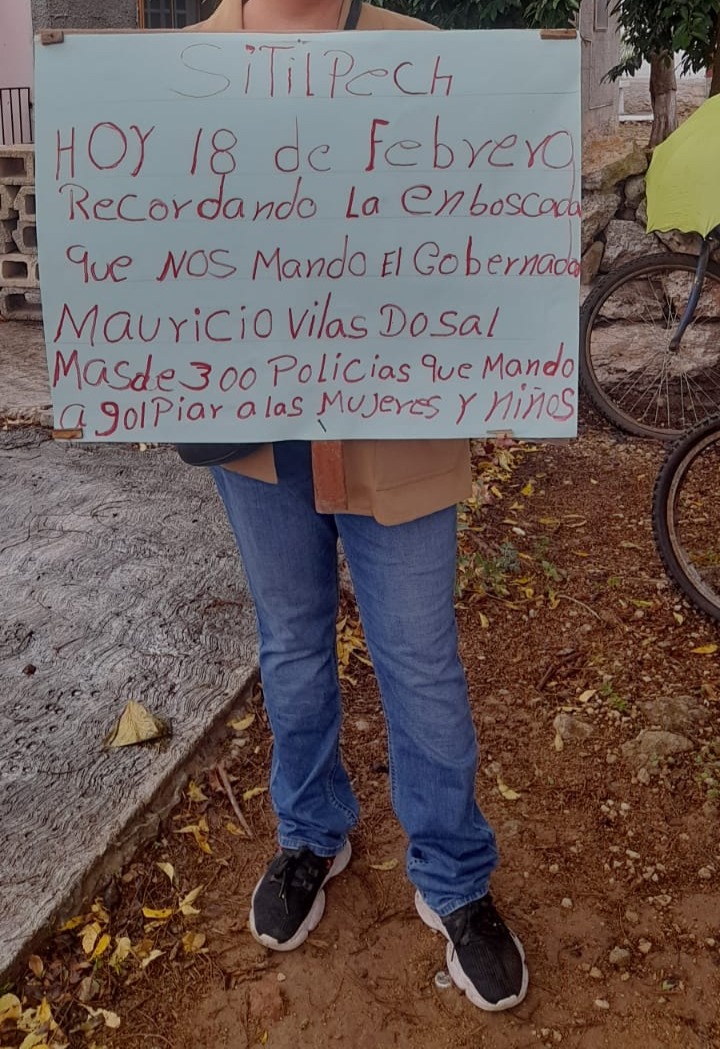 SiTilPech
HOY 18 de Febrero
Recordando La enboscada
que NOS Mando El Gobernador
Mauricio Vilas Dosal
Masde 300 Policias que Mando
a golPiar a las Mujeres Y Niños